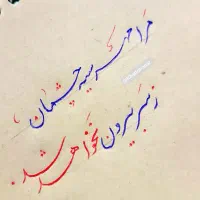 مرا مهر سیه چشمان
ز سر بیرون نخواهد شد